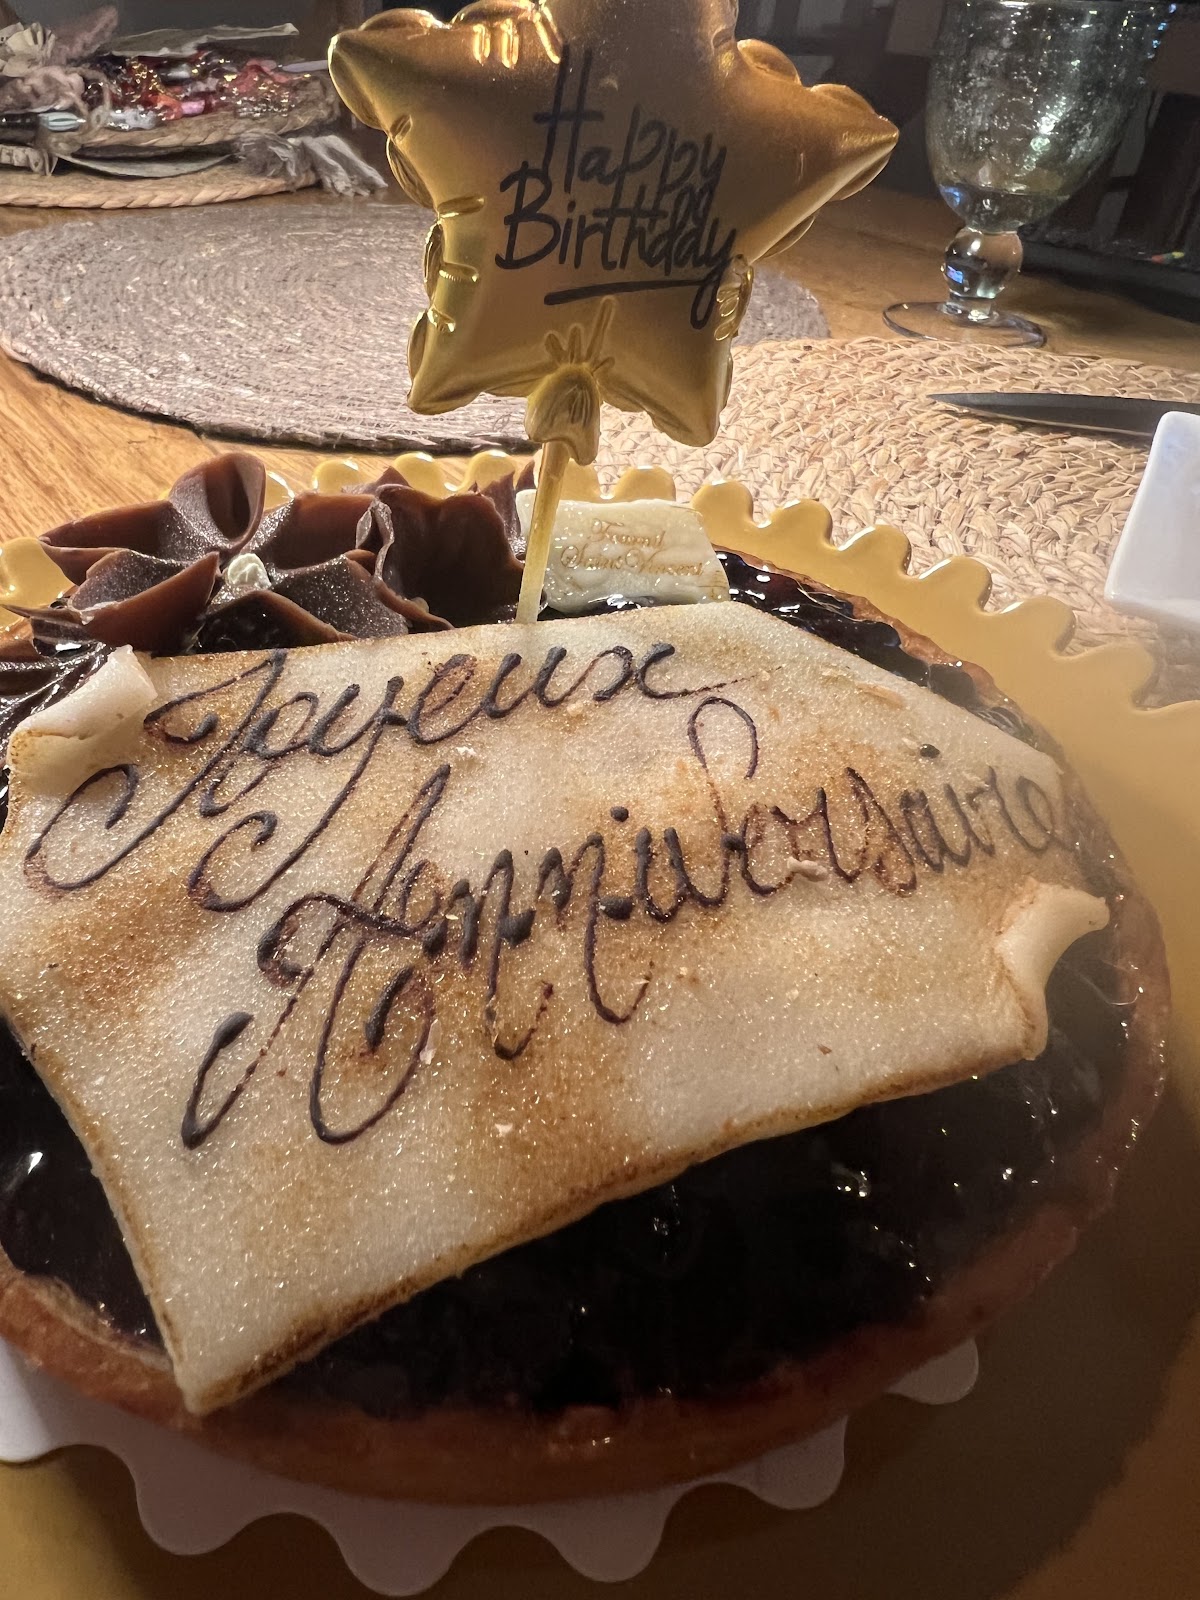 Happy
Birthday
Fournil
Saint Vincent
Joyeux
Anniversaire